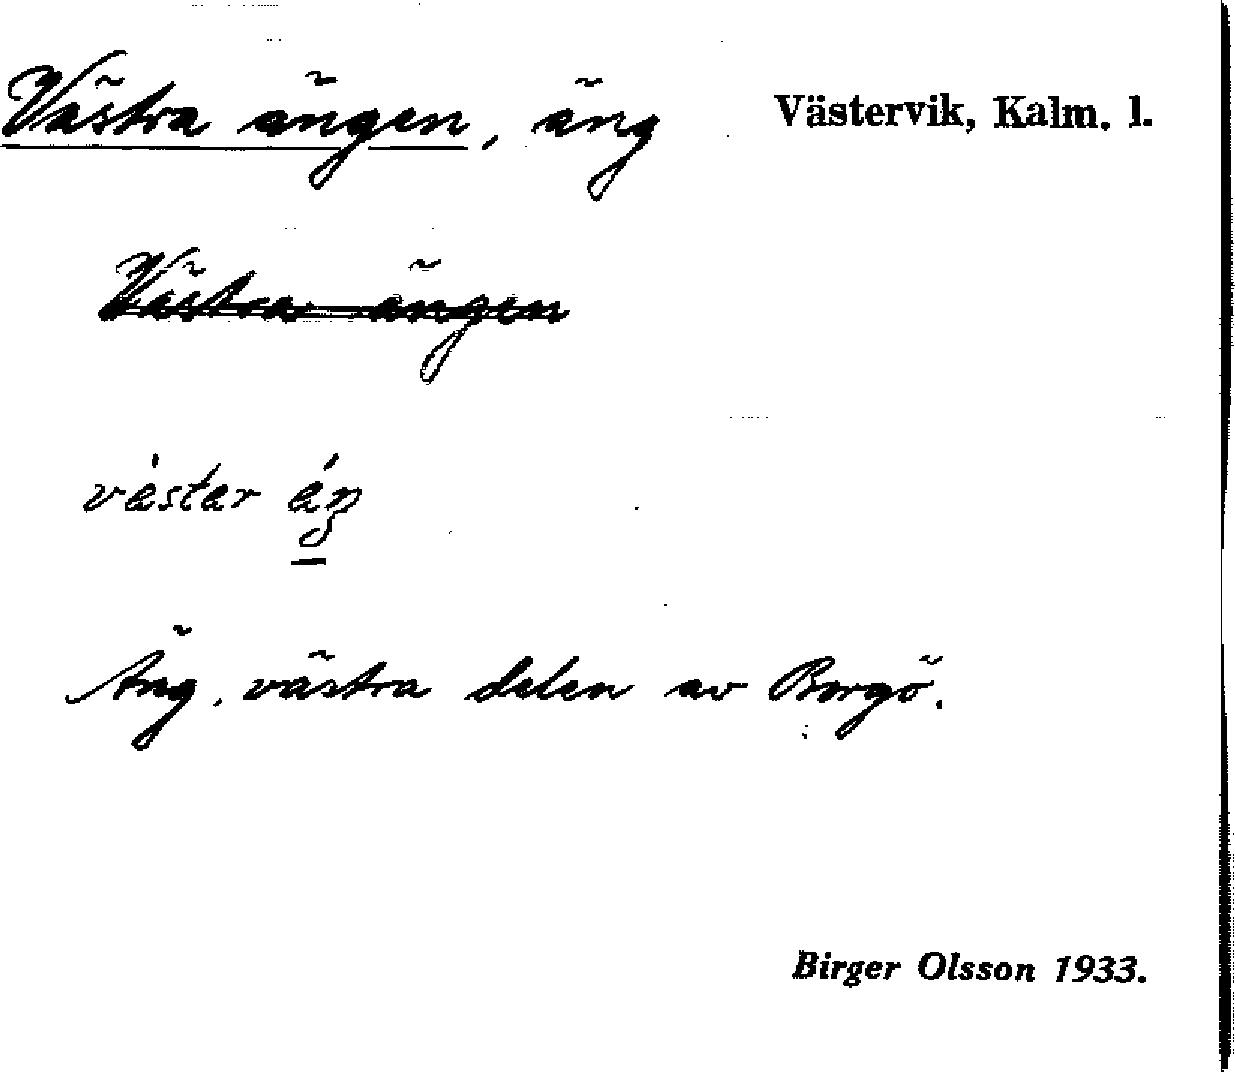 Västra ängen, äng Västervik, Kalm. l.
Västra ängen
västar äŋ
Äng, västra delen av Borgö.
Birger Olsson 1933.